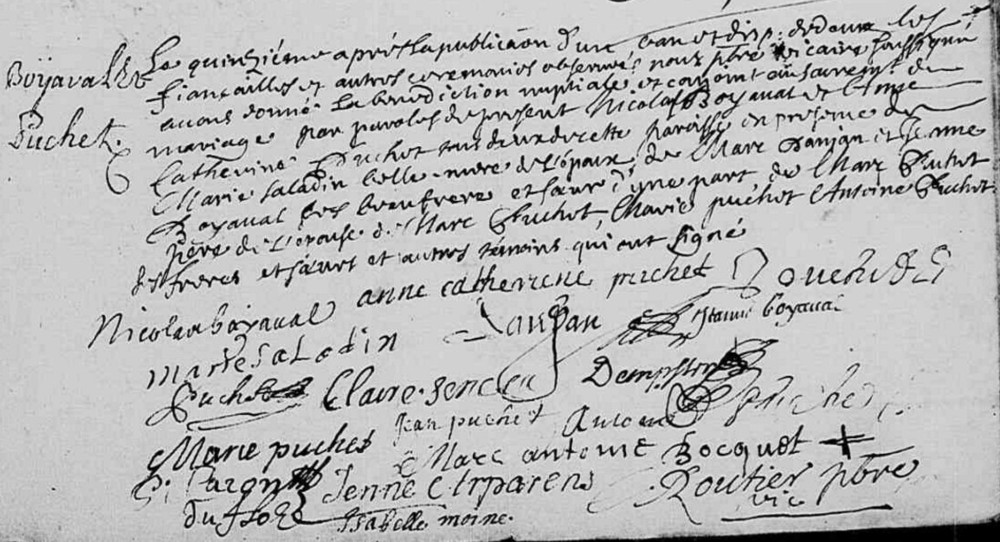 Boyaval Et
Puchet.
Le quinziéme aprés la publication d'un ban et disp. de deux les
fiançailles et autres ceremonies observees nous pbre vicaire soussigné
avons donné la benediction nuptiale et conjoint au sacremt. de
mariage par paroles de present Nicolas Boyaval et Anne
Catherine Puchot tous deux de cette paroisse en presence de
Marie Saladin belle mere de L'epoux de Marc Danjan et Jenne
Boyaval ses beaufrere et sœur d'une part de Marc Puchot
pere de L'epouse de Marc Puchot Marie puchot Antoine Puchot
ses freres et sœurs et autres témoins qui ont signé
Nicolas boyaval anne catherene puchet
marie saLadin Danjan Jenne boyaval
Puchet Claire Dempst
Marie puchet Jean puchet Antoine Puchet
Marc antoine Bocquet +
Jenne
Isabelle moine. Routier pbre
vic